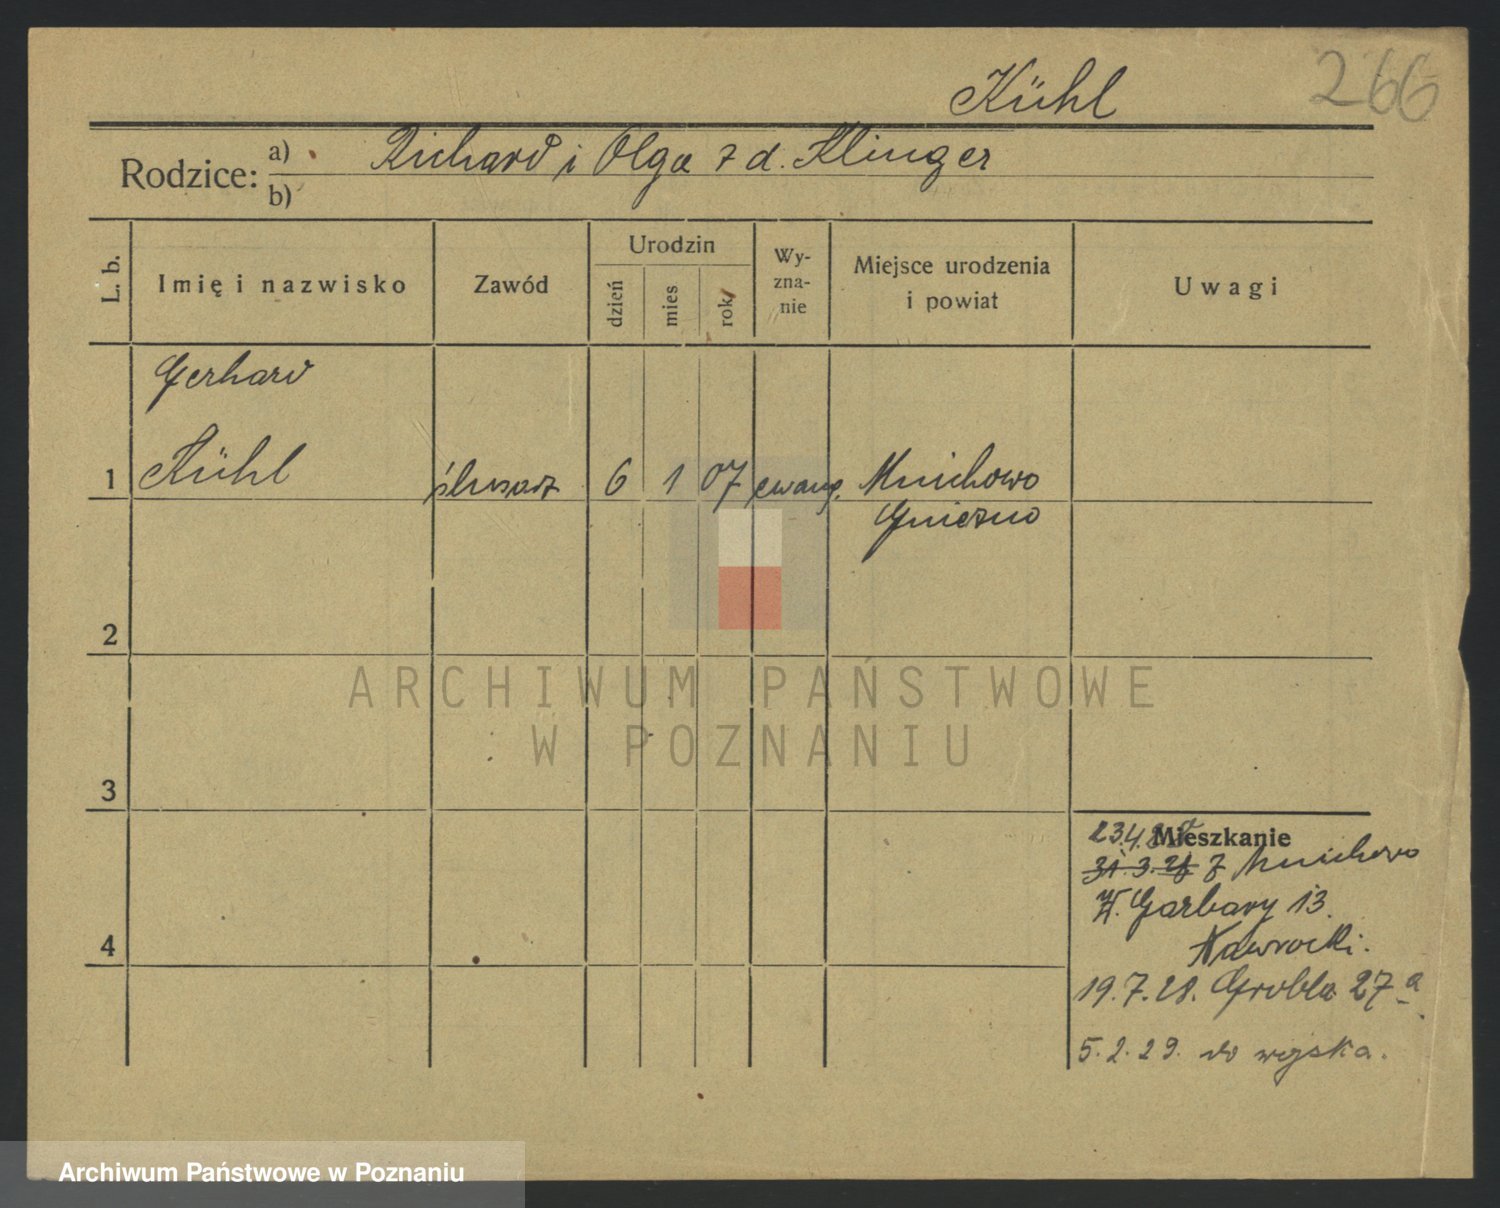 Kühl
266
Rodzice: a) Richard i Olga z d. Klinger
b)
L. b.
Imię i nazwisko
Zawód
Urodzin
dzień
mies
rok
Wy-
zna-
nie
Miejsce urodzenia
i powiat
Uwagi
Gerhard
1 Kühl ślusarz 6 1 07 ewang. Mnichowo
Gniezno
2
ARCHIWUM PAŃSTWOWE
W POZNANIU
3
Mieszkanie
23.4.
31.3. z Mnichowo
W. Garbary 13.
Nawrocki.
4
19.7.28. Grobla 27a
5.2.29. do wojska.
Archiwum Państwowe w Poznaniu